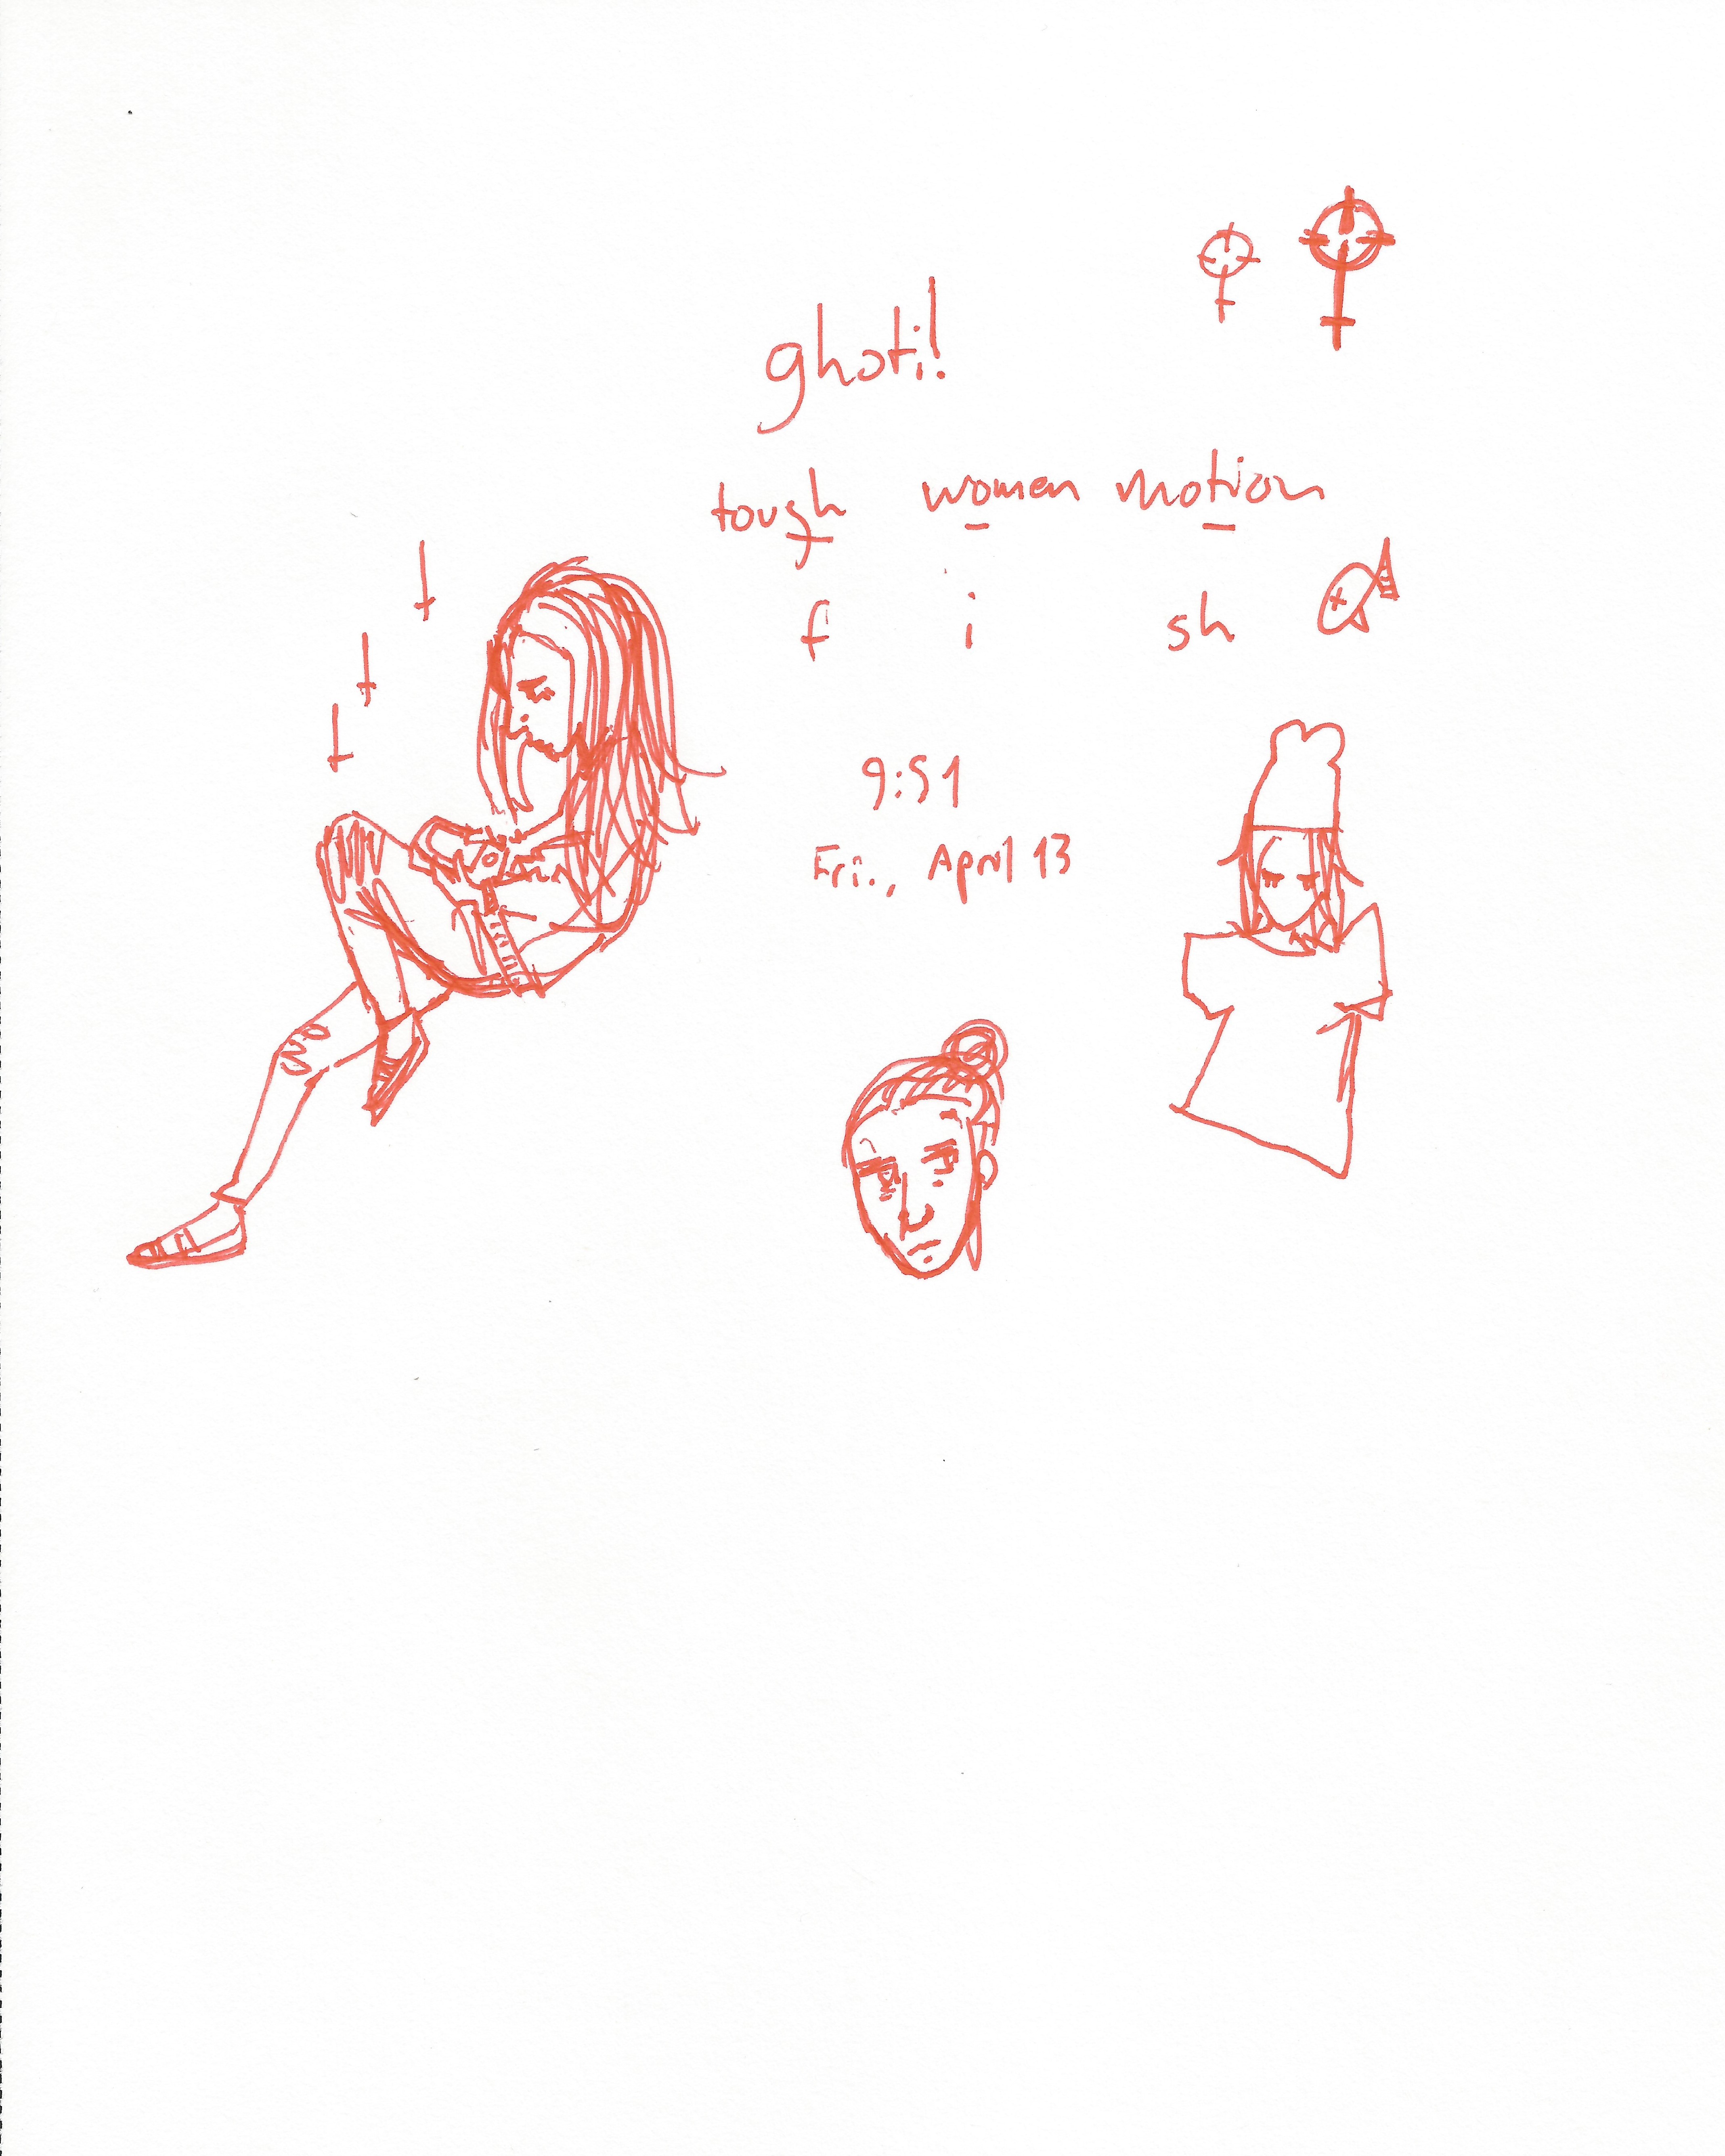 ghoti!
tough women motion
f i sh
9:51
Fri., April 13